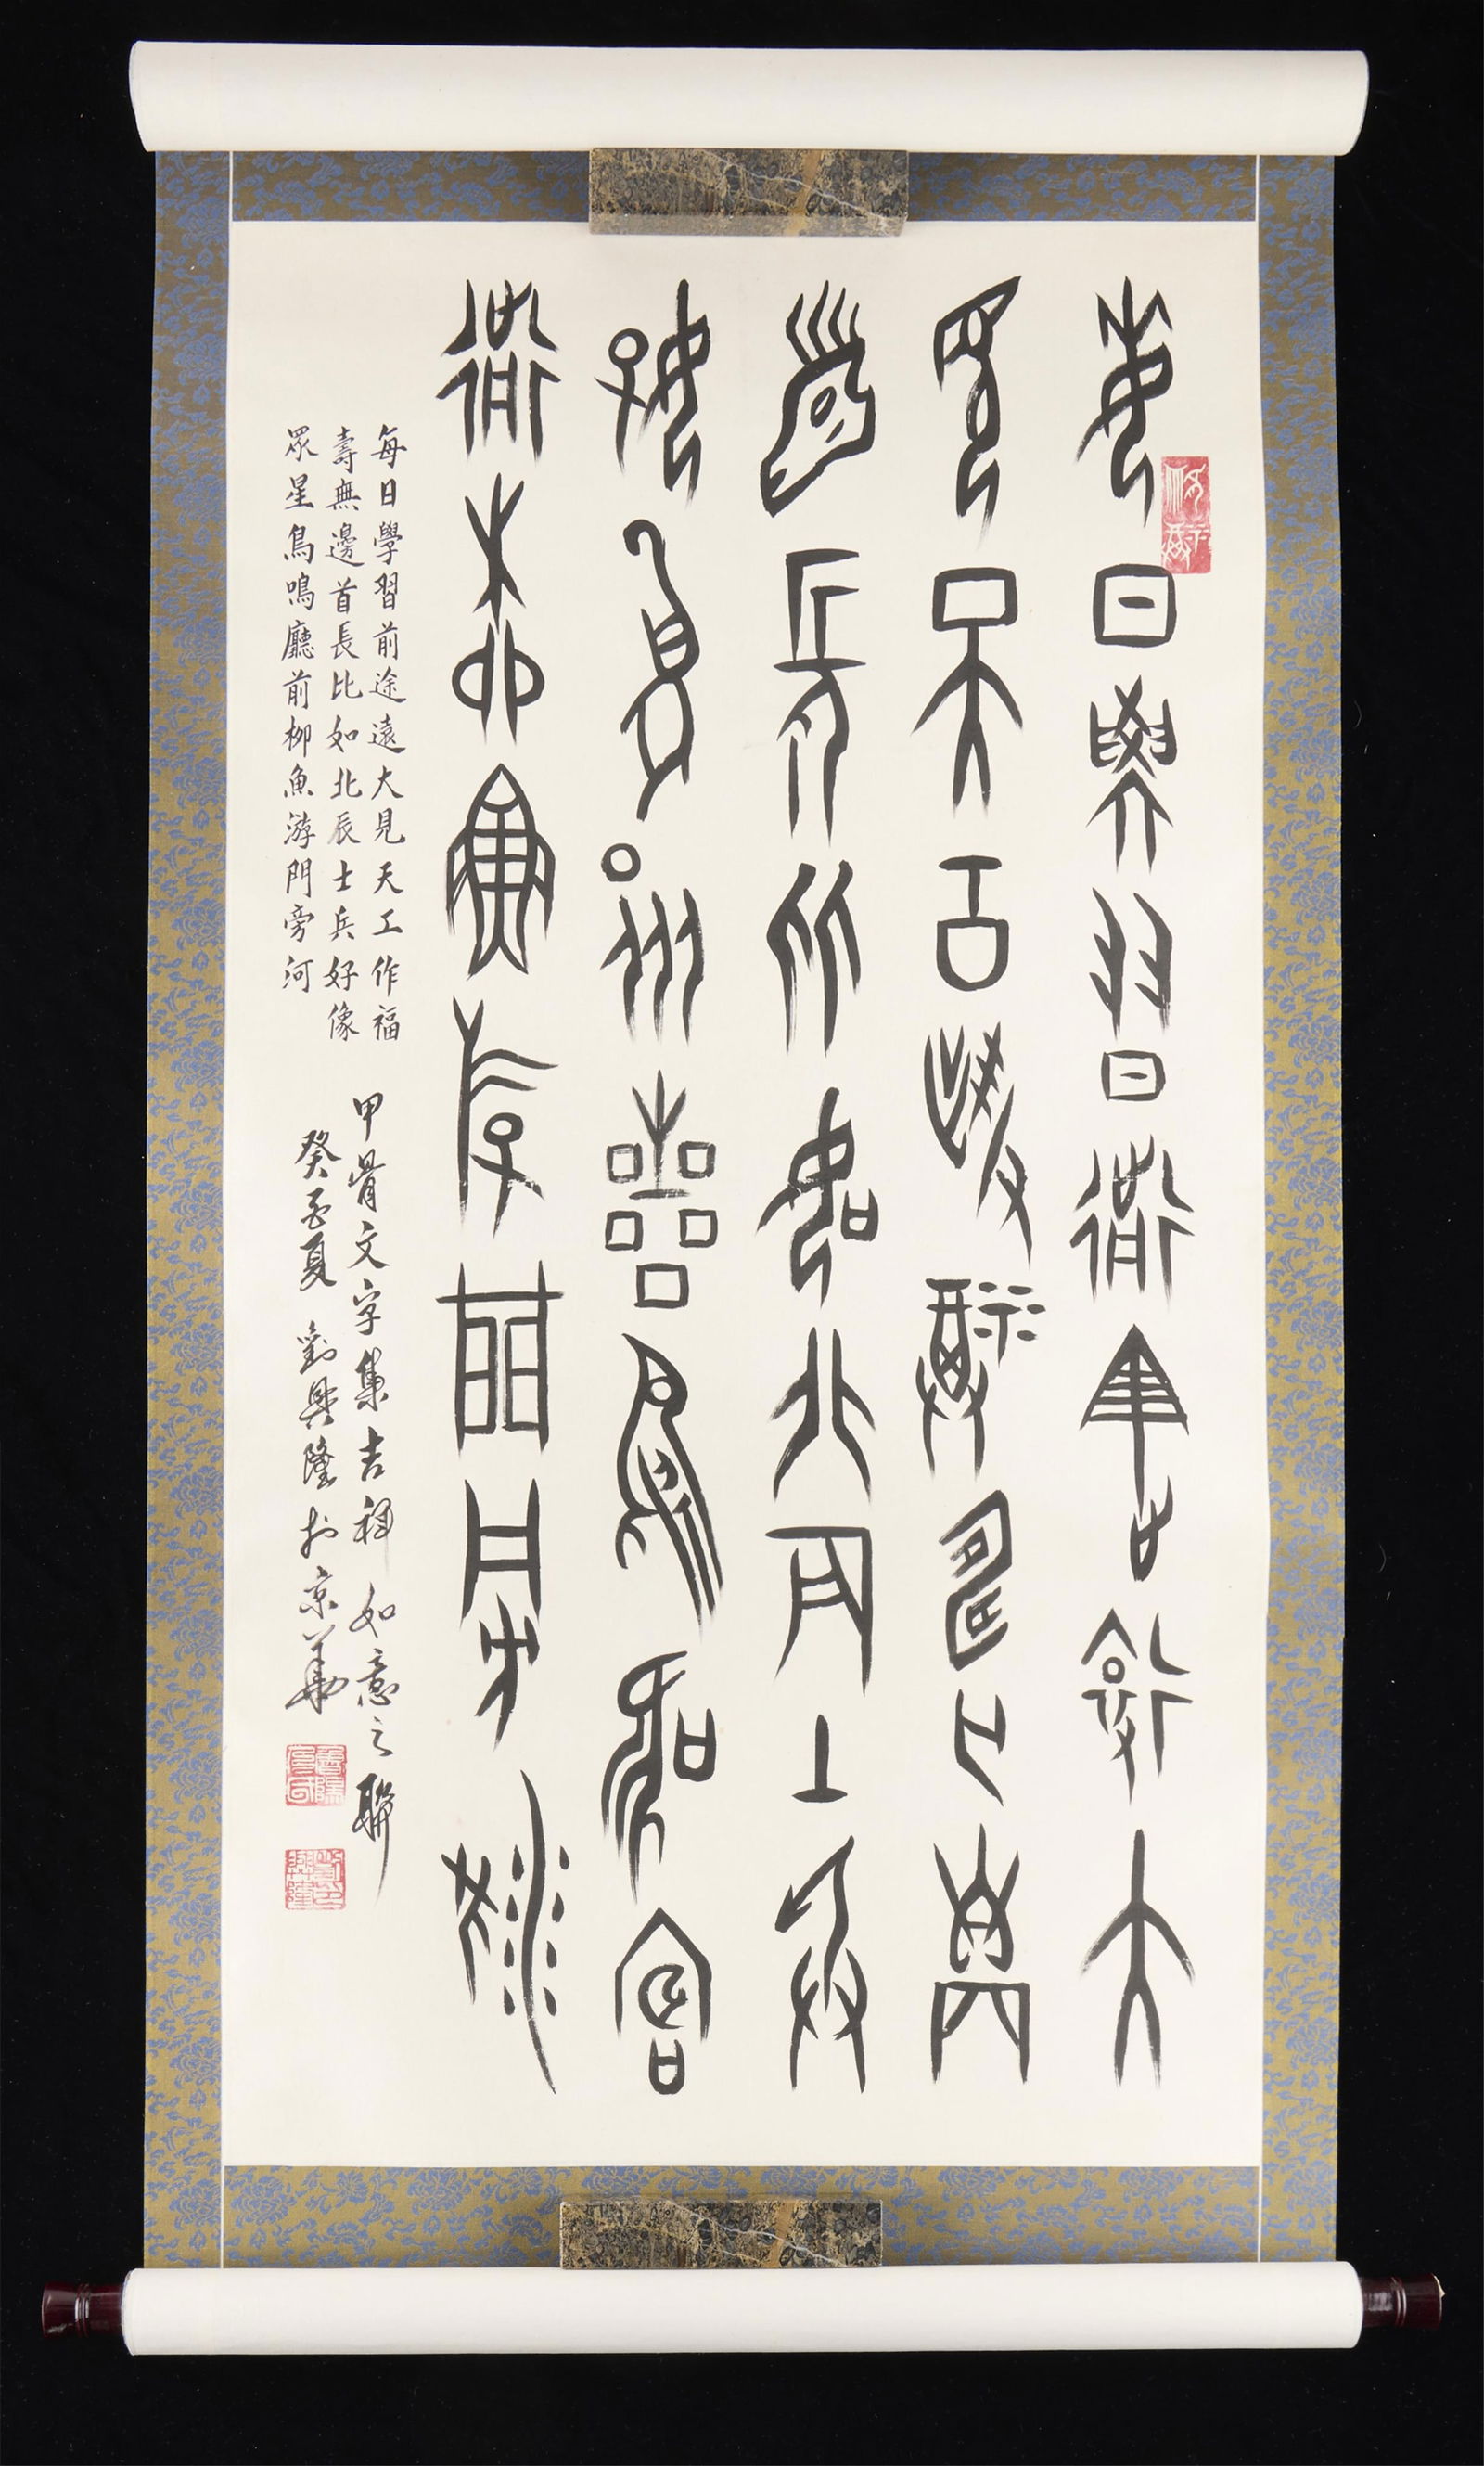 每日學習前途遠大
見天工作福壽無邊
首長比如北辰士兵
好像眾星鳥鳴廳
前柳魚游門旁河
每日學習前途遠大見天工作福
壽無邊首長比如北辰士兵好像
眾星鳥鳴廳前柳魚游門旁河
甲骨文字集吉祥如意之聯
癸巳夏 劉興隆於京華